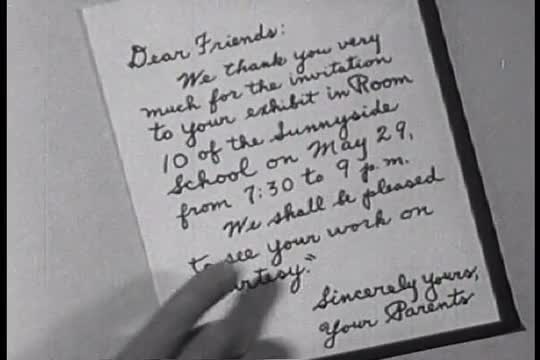 Dear Friends:
We thank you very
much for the invitation
to your exhibit in Room
10 of the Sunnyside
School on May 29,
from 7:30 to 9 p.m.
We shall be pleased
to see your work on
Sincerely yours,
Your Parents